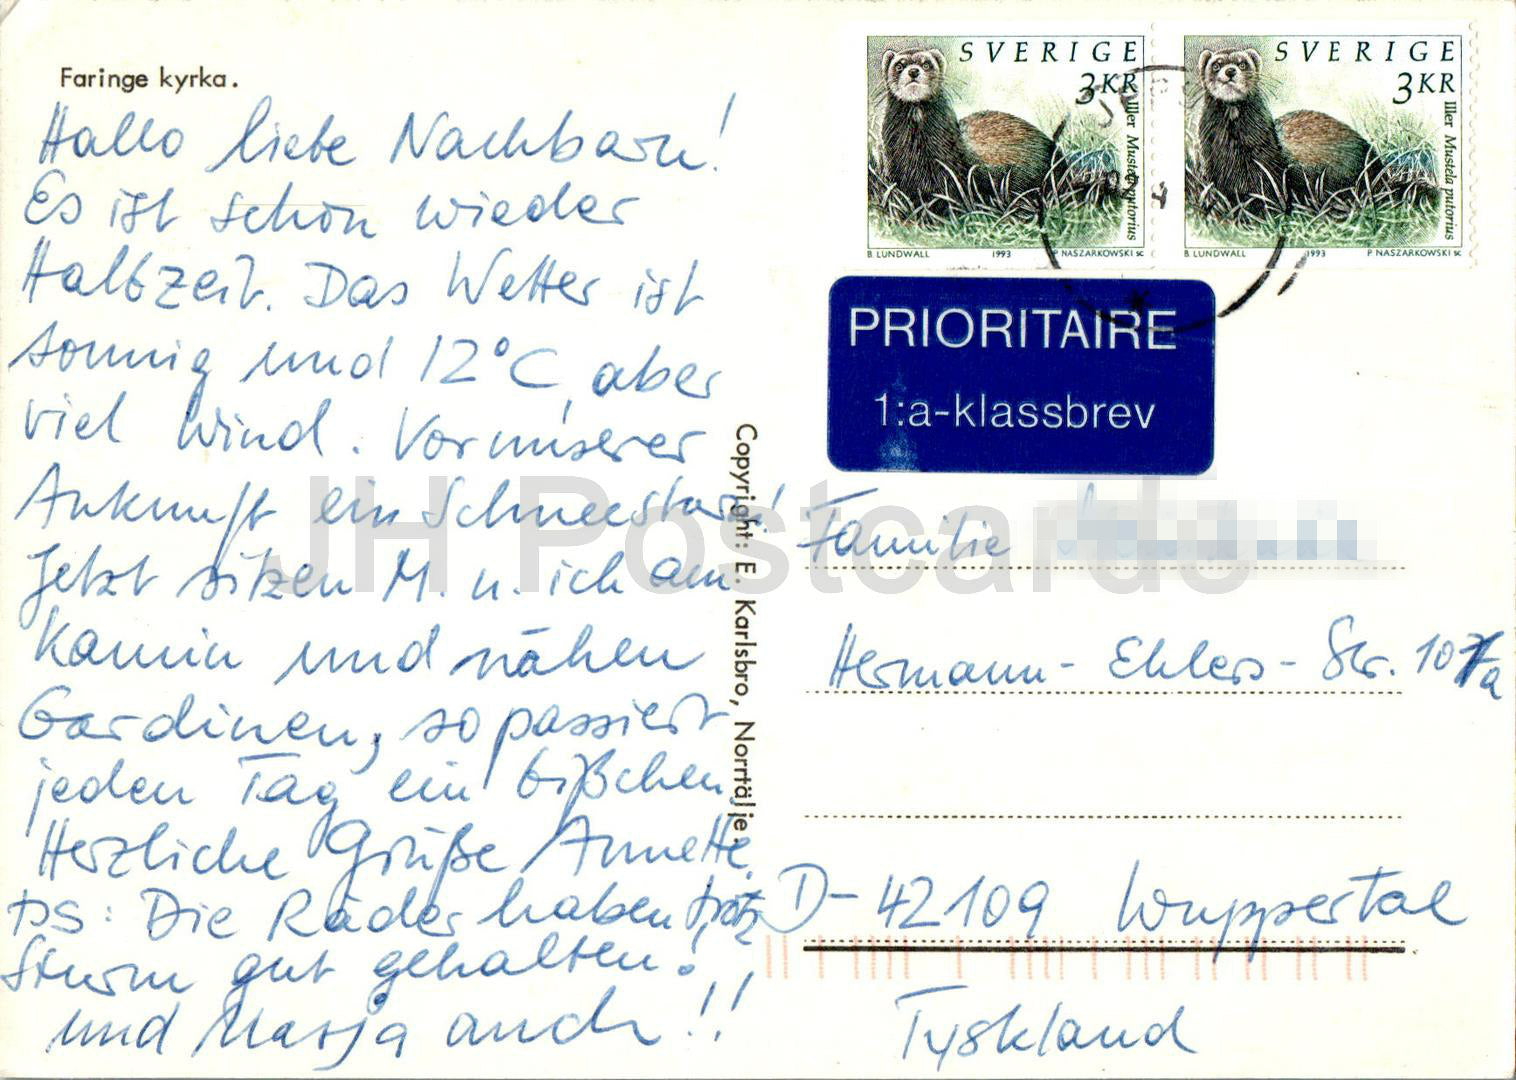 Faringe kyrka.
Hallo liebe Nachbarn!
Es ist schon wieder
Halbzeit. Das Wetter ist
sonnig und 12°C, aber
viel Wind. Vor unserer
Ankunft ein Schneesturm!
Jetzt sitzen M. u. ich am
Kamin und nähen
Gardinen, so passiert
jeden Tag ein bißchen.
Herzliche Grüße Annette.
PS: Die Räder haben trotz
Sturm gut gehalten!
und Marja auch!!
Copyright: E. Karlsbro, Norrtälje.
SVERIGE
3KR
Iller Mustela putorius
B LUNDWALL 1993 P NASZARKOWSKI SC
SVERIGE
3KR
Iller Mustela putorius
B LUNDWALL 1993 P NASZARKOWSKI SC
PRIORITAIRE
1:a-klassbrev
Familie
Hermann-Ehlers-Str. 107a
D-42109 Wuppertal
Tyskland
JH Postcards